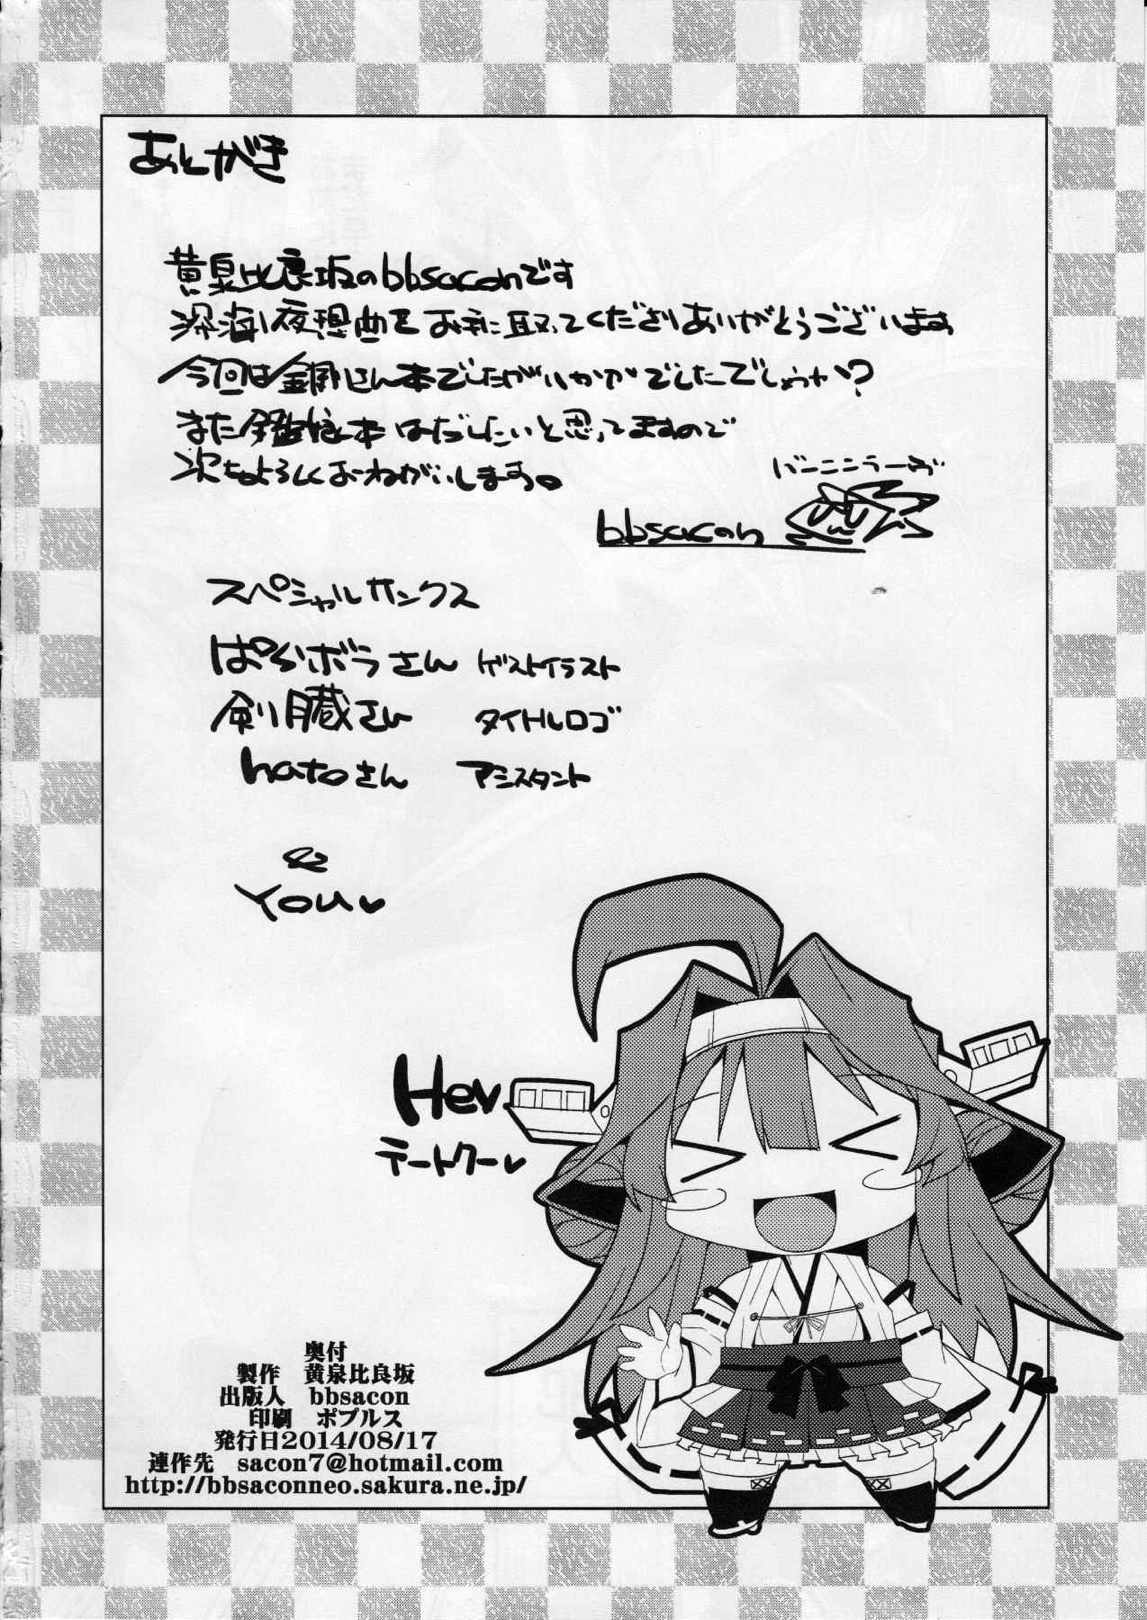 あとがき
黄泉比良坂のbbsaconです
深海夜想曲をお手に取ってくださりありがとうございます
今回は金剛さん本でしたがいかがでしたでしょうか?
また艦娘本はだしたいと思ってますので
次もよろしくおねがいします。
バーニンラーブ
bbsacon
スペシャルサンクス
ぱらボラさん ゲストイラスト
剣月蔵さん タイトルロゴ
hatoさん アシスタント
&
You♥
Hey
テートクー♥
奥付
製作 黄泉比良坂
出版人 bbsacon
印刷 ポプルス
発行日2014/08/17
連作先 sacon7@hotmail.com
http://bbsaconneo.sakura.ne.jp/